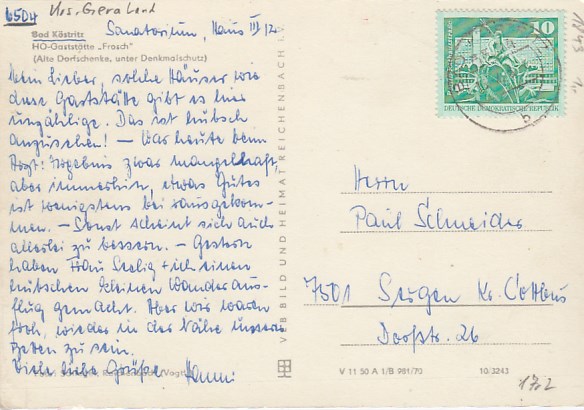 6504 Krs. Gera Land
Sanatorium, Haus III/12
Bad Köstritz
HO-Gaststätte „Frosch"
(Alte Dorfschenke, unter Denkmalschutz)
Mein Lieber, solche Häuser wie
diese Gaststätte gibt es hier
unzählige. Das ist hübsch
anzusehen! – War heute beim
Arzt: Ergebnis zwar mangelhaft,
aber immerhin, etwas Gutes
ist wenigstens bei rausgekom-
men. – Sonst scheint sich auch
allerlei zu bessern. – Gestern
haben Frau Seelig + ich einen
hübschen kleinen Wanderaus-
flug gemacht. Aber wir waren
froh, wieder in der Nähe unserer
Betten zu sein.
Viele liebe Grüße Hanni
VEB BILD UND HEIMAT REICHENBACH i. V.
10
DEUTSCHE DEMOKRATISCHE REPUBLIK
Herrn
Paul Schneider
7501 Sergen Kr. Cottbus
Dorfstr. 26
V 11 50 A 1/B 981/70 10/3243
17.2